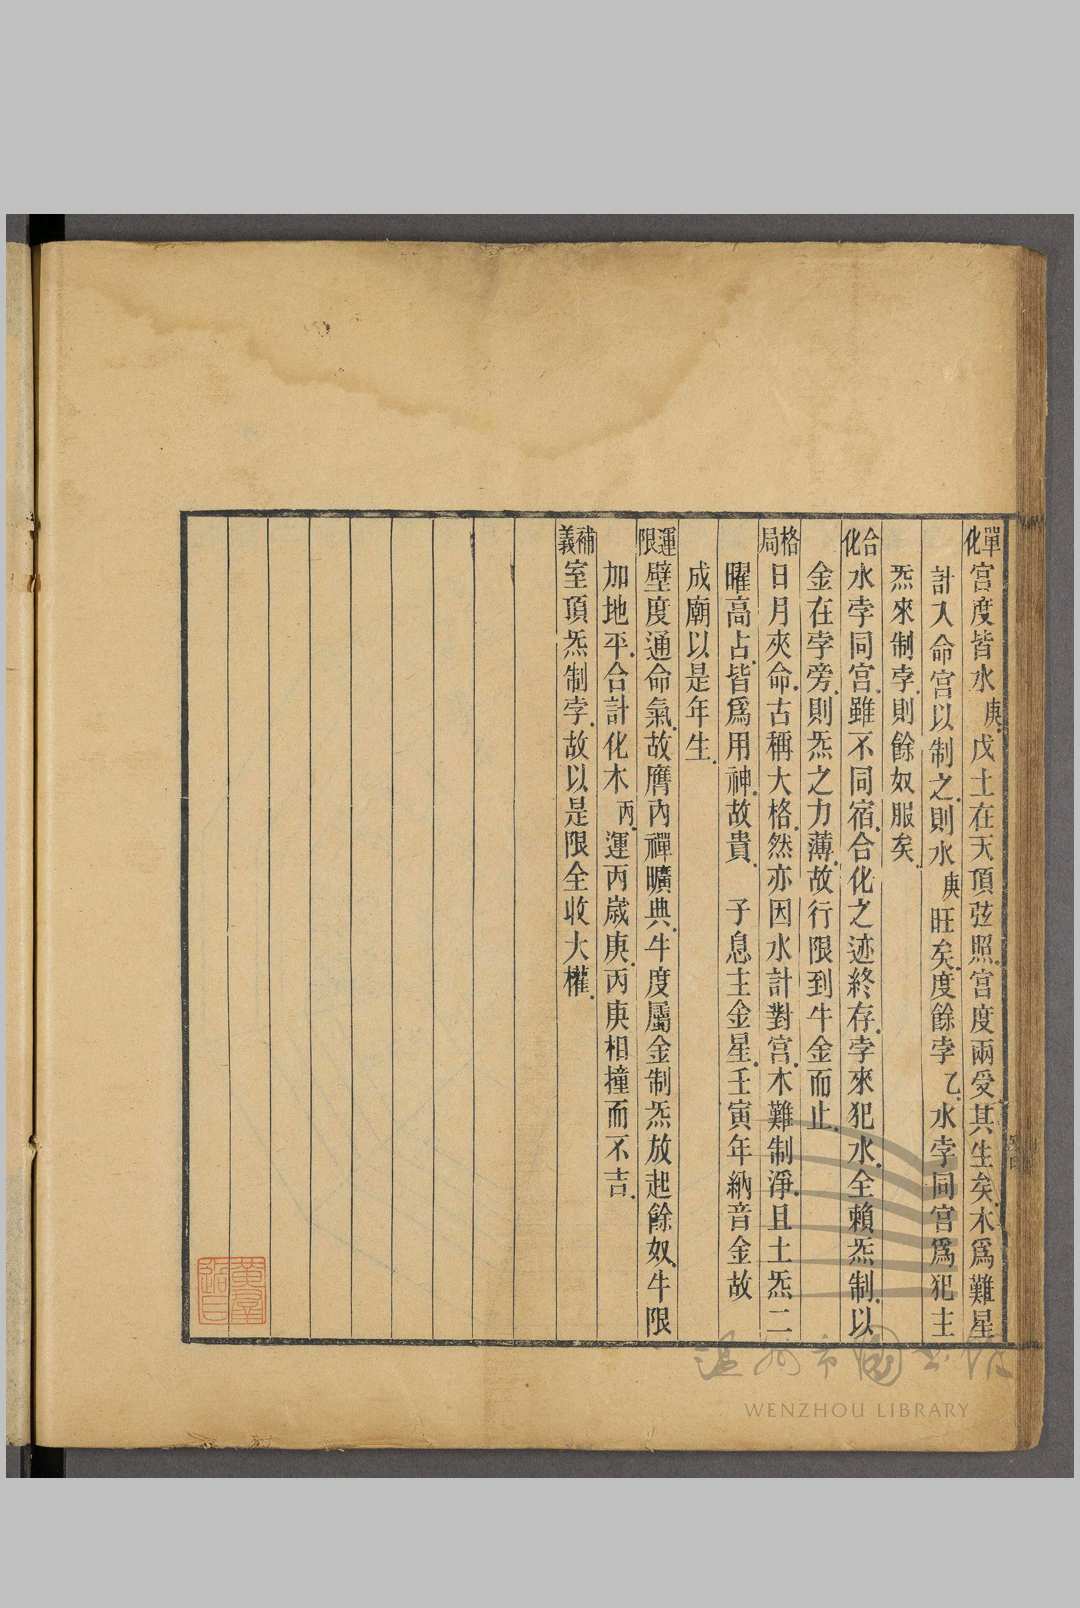 單化宮度皆水庚戊土在天頂弦照宮度兩受其生矣木爲難星
計入命宮以制之則水庚旺矣度餘孛乙水孛同宮爲犯主
炁來制孛則餘奴服矣
合化水孛同宮雖不同宿合化之迹終存孛來犯水全賴炁制以
金在孛旁則炁之力薄故行限到牛金而止
格局日月夾命古稱大格然亦因水計對宮木難制淨且土炁二
曜高占皆爲用神故貴 子息主金星壬寅年納音金故
成廟以是年生
運限壁度通命氣故膺內禪曠典牛度屬金制炁放起餘奴牛限
加地平合計化木丙運丙歲庚丙庚相撞而不吉
補義室頂炁制孛故以是限全收大權
溫州市圖書館
WENZHOU LIBRARY